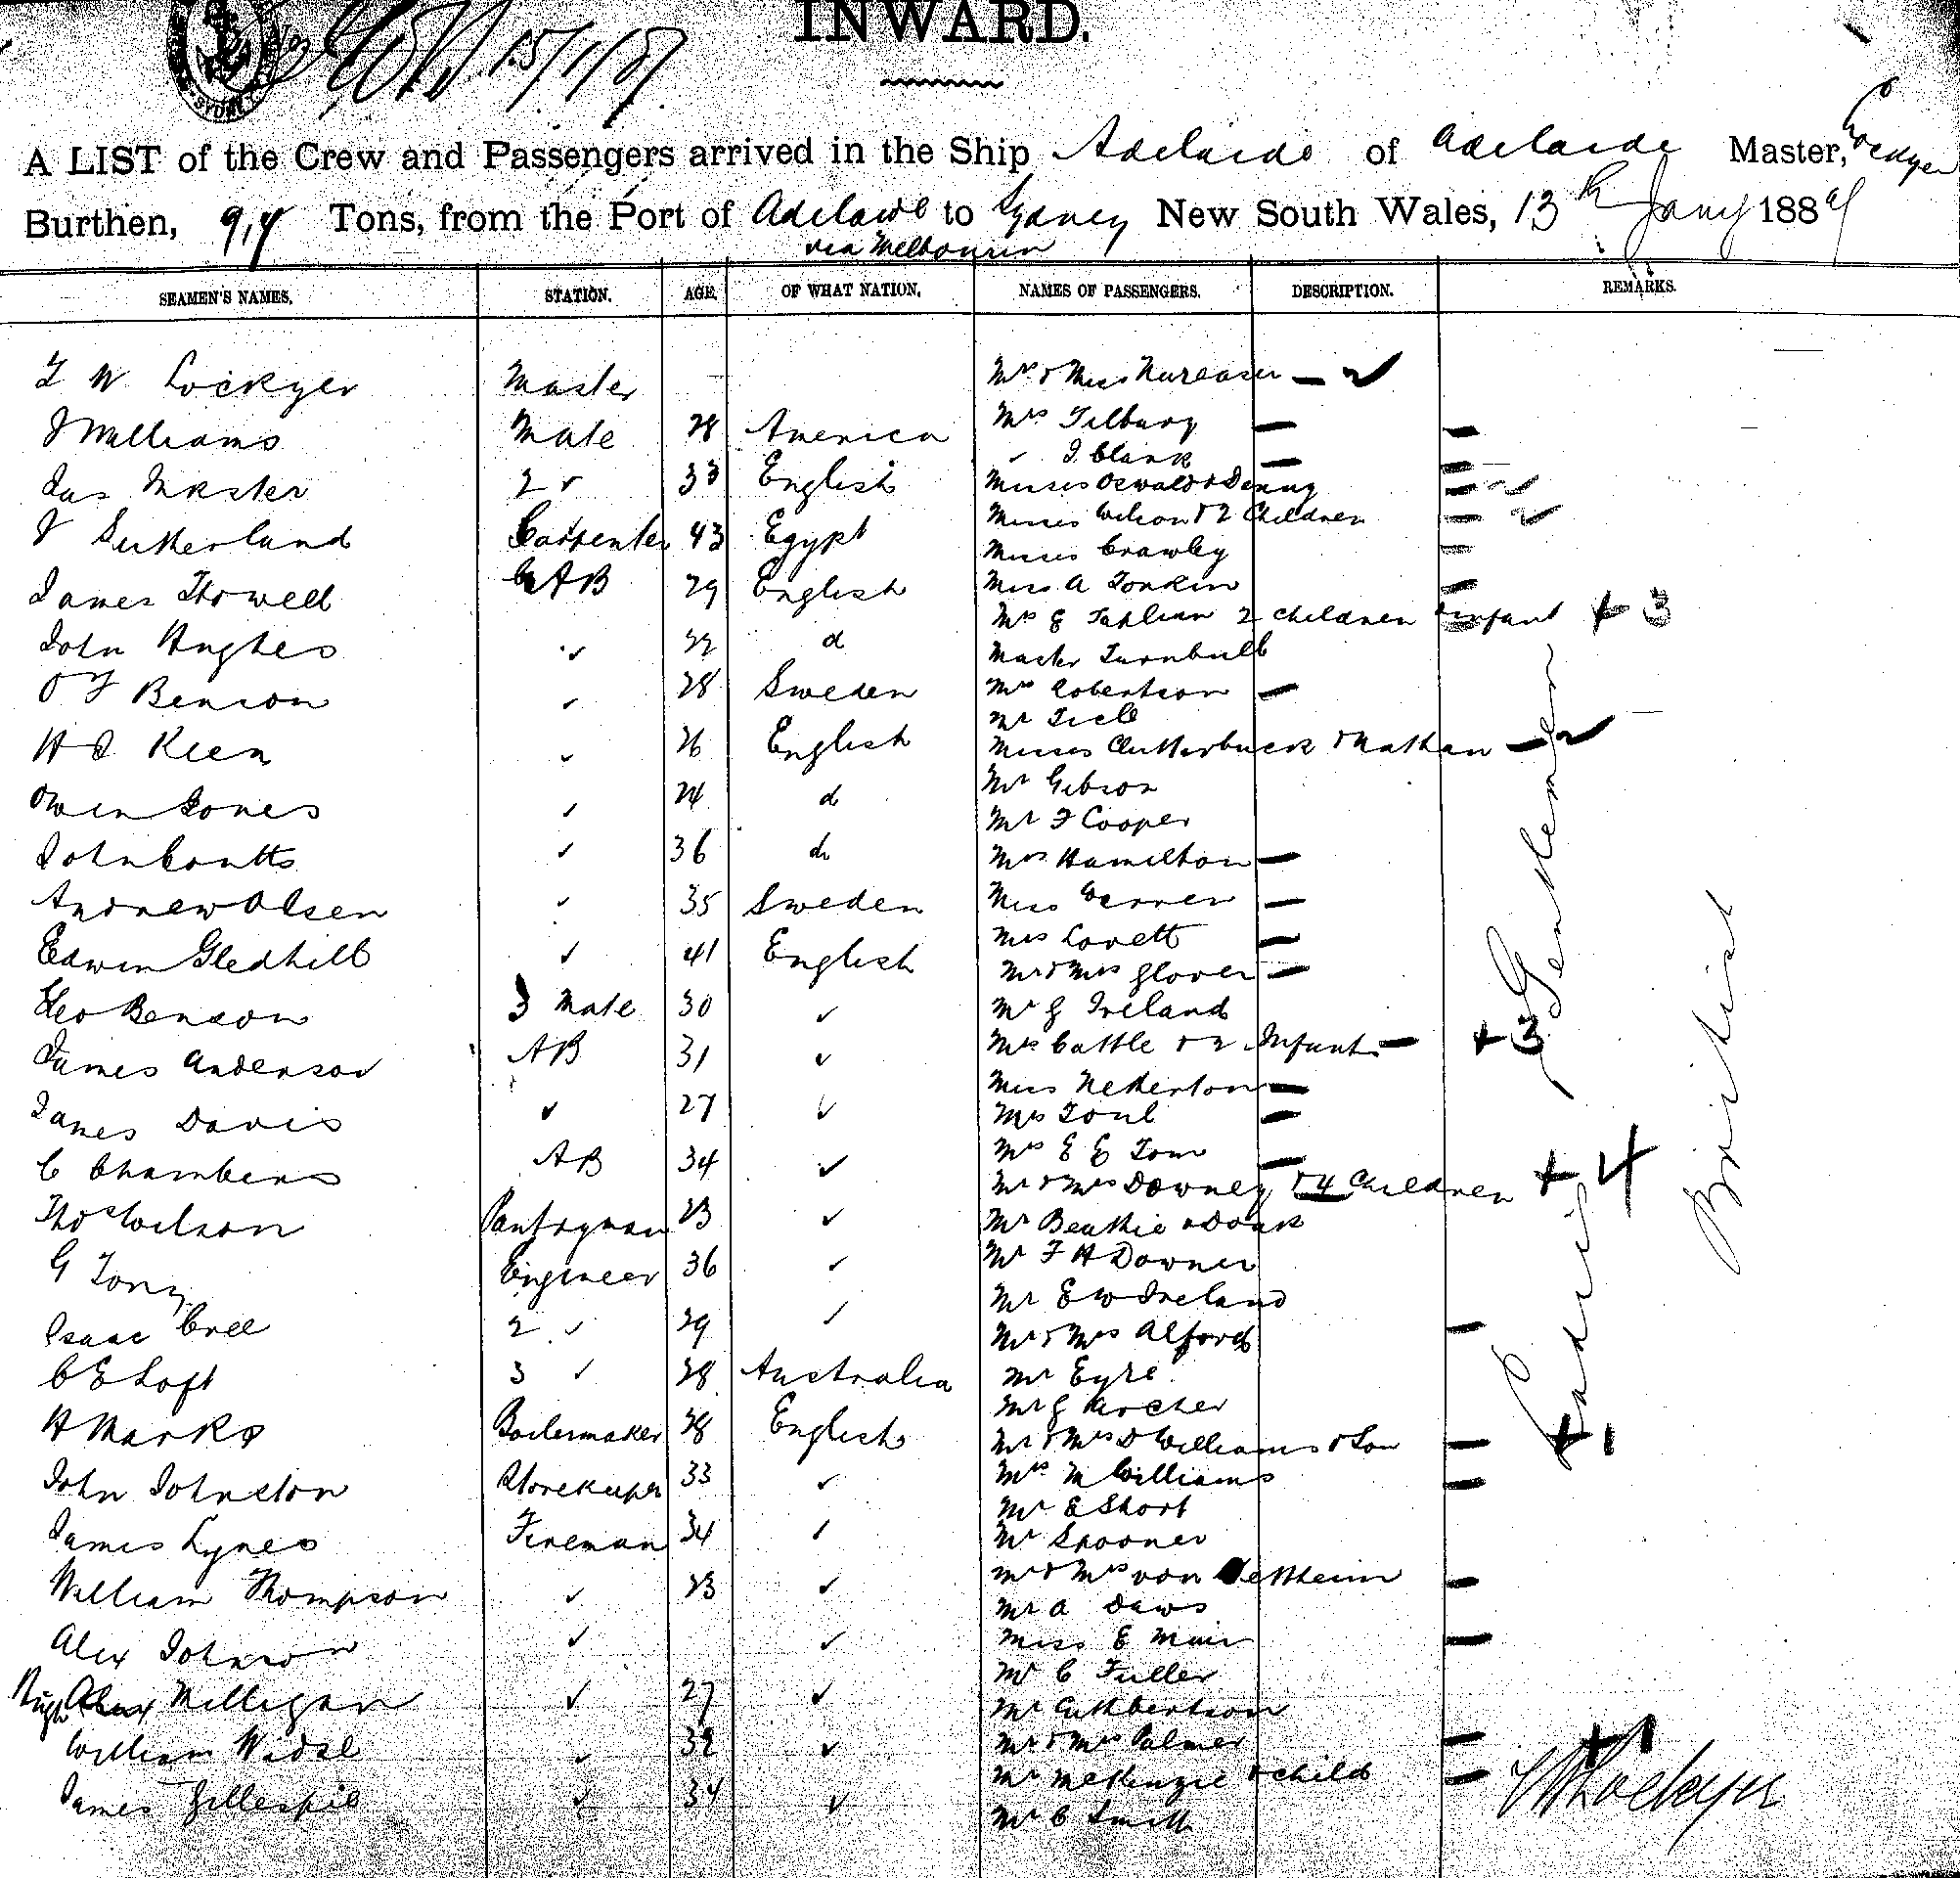 INWARD.
SYDNEY
15/1/89
A LIST of the Crew and Passengers arrived in the Ship Adelaide of Adelaide Master, Lockyer
Burthen, Tons, from the Port of Adelaide to Sydney New South Wales, 13th Jany 1889
via Melbourne
SEAMEN'S NAMES. STATION. AGE. OF WHAT NATION. NAMES OF PASSENGERS. DESCRIPTION. REMARKS.
Lockyer Master Mrs & Miss
J Williams Mate 28 America Mrs Tilbury
✓ J Clark
Jas 2 ✓ 33 English Misses Oswald & Denny
J Sutherland Carpenter 43 Egypt Misses Wilson & 2 Children
Misses Crawley
James Thowell AB 29 English Miss A Tonkin
John Hughes ✓ 22 d Mrs E 2 children & infant + 3
Master Turnbull
O F Benson ✓ 28 Sweden Mrs Robertson
Mr
H J Keen ✓ 26 English Misses Clutterbuck & Nathan
Mr Gibson
Owen Jones ✓ 24 d Mr F Cooper
John Coutts ✓ 36 do Mrs Hamilton
Andrew Olsen ✓ 35 Sweden Miss
Mrs Lovett
Edwin Gledhill ✓ 41 English Mr & Mrs Glover
Geo Benson 3 Mate 30 ✓ Mr G Ireland
James Anderson AB 31 ✓ Mrs Cattle & 2 Infants + 3
Miss Netherton
James Davis ✓ 27 ✓ Mrs
C Chambers AB 34 ✓ Mrs E E Tom
Mr & Mrs Downey & 4 Children + 4
Thos Wilson Pantryman 23 ✓ Mr Beattie & Doak
G Engineer 36 ✓ Mr F H Downer
Mr E W Ireland
Isaac Cree 2 ✓ 29 ✓ Mr & Mrs Alford
C E Loft 3 ✓ 28 Australia Mr Eyre
Mr G Archer
H Marks Boilermaker 28 English Mr & Mrs D Williams & Son + 1
John Johnston Storekeeper 33 ✓ Mrs M Williams
Mr E Short
James Lynes Fireman 34 ✓ Mr Spooner
William Thompson ✓ 23 ✓ Mr & Mrs von
Mr A Daws
Alex Johnson ✓ ✓ Miss E Muir
Mr C Fuller
Hugh Milligan ✓ 27 ✓ Mr Cuthbertson
William ✓ 32 ✓ Mr & Mrs Palmer + 1
James Gillespie ✓ 34 ✓ Mr McKenzie & child
Mr C Smith
Gentlemen
Ladies
British
Lockyer